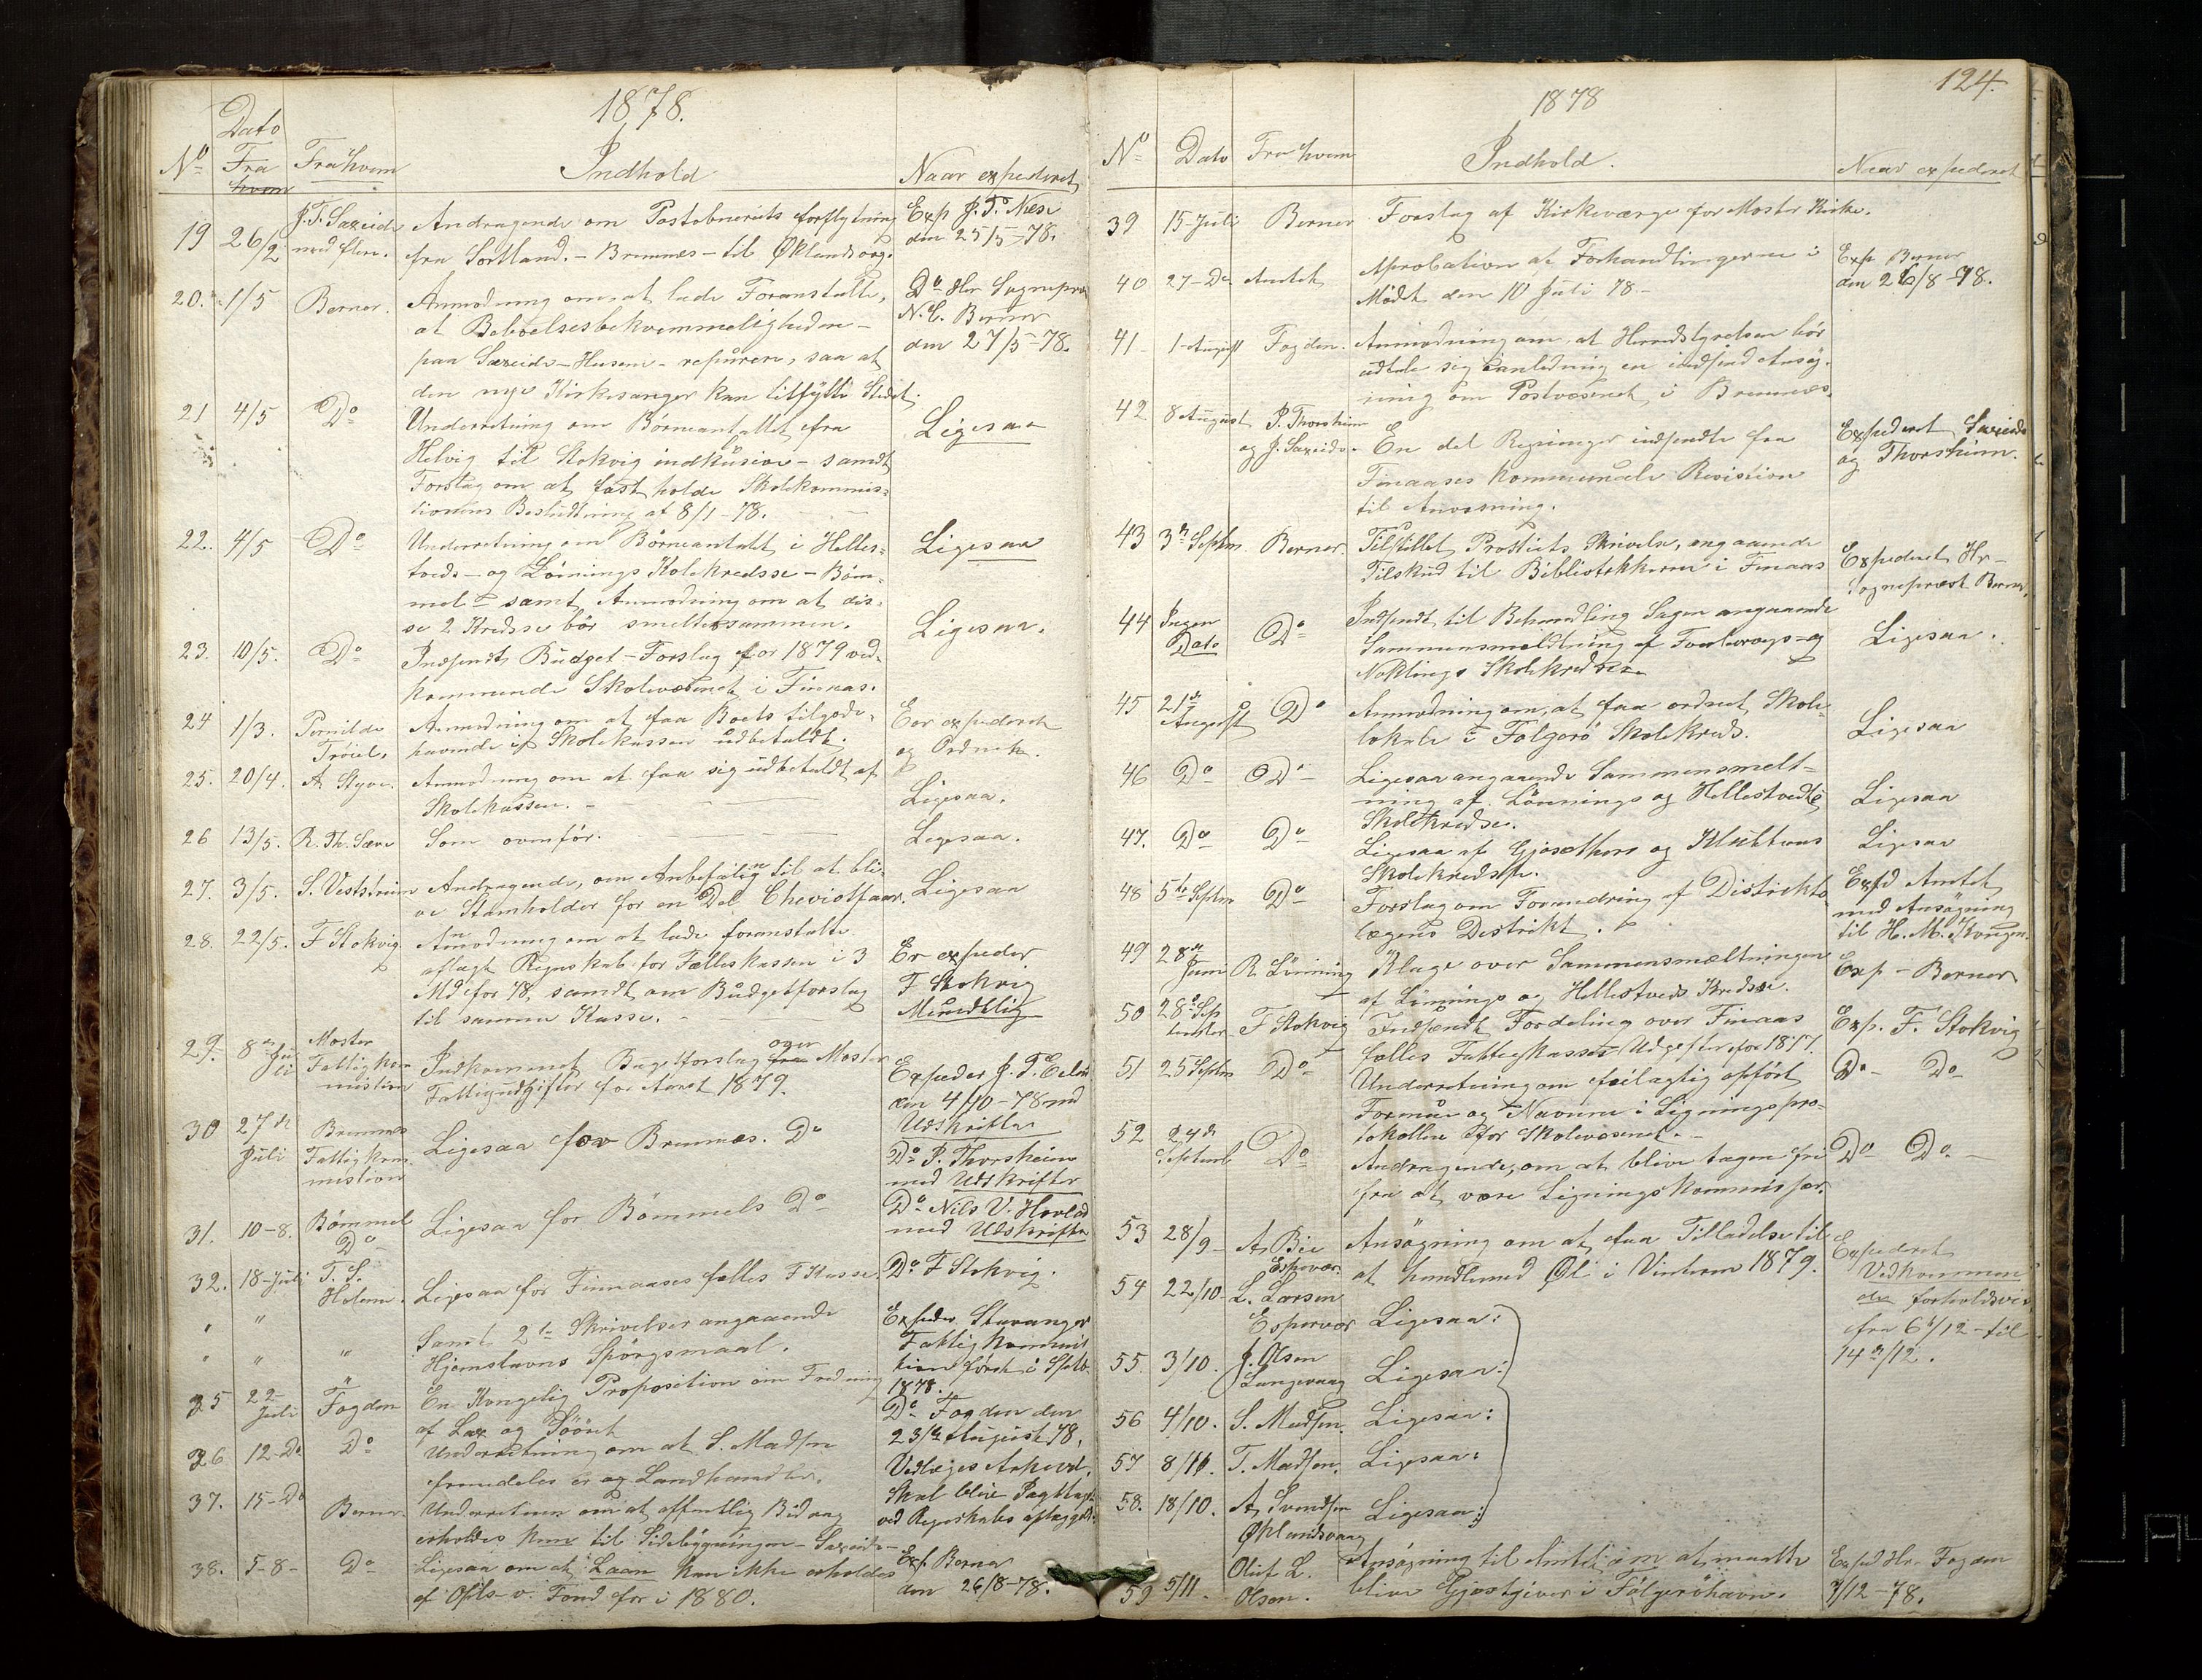 1878.
Dato
No Fra Fra hvem Indhold Naar expederet
hvem
19 26/2 J. T. Saxeide Andragende om Postabneriets forflytning Exp J. T. Næse
med flere. fra Sortland - Bremnes - til Øklandsvag. den 25/5-78.
20. 1/5 Berner. Anmodning om, at lade Foranstalte, Do Hr Sognepr
at Beboelsesbekvemmeligheden - N. C. Berner
paa Saxeide-Husene - repareres, saa at den 27/5-78.
den nye Kirkesanger kan tilflytte Stedet.
21 4/5 Do Underretning om Børneantallet fra Ligesaa
Helvig til Stokvig indklusive - samdt
Forslag om at fast holde Skolekommis-
tionens Beslutning af 8/1-78.
22. 4/5 Do Underretning om Børneantalet i Helles- Ligesaa
tveds- og Lønnings Skolekredsse - Bøm-
mel - samt Anmodning om at dis-
se 2 Kredsse bør smeltes sammen.
23. 10/5. Do Indsendt Budget-Forslag for 1879 ved- Ligesaa.
kommende Skolevæsenet i Finnas.
24 1/3. Pernilde Anmodning om at faa Boets tilgode- Er expederet
Trøiel. havende i Skolekassen udbetaldt. og Ordnet.
25. 20/4. A Styve. Anmodning om at faa sig udbetaldt af Ligesaa.
Skolekassen.
26 13/5. R. Th. Sæve Som ovenfor. Ligesaa.
27. 3/5. S. Vestheim Andragende, om Anbefaling til at bli- Ligesaa
ve Stamholder for en Del Cheviotfaar.
28. 22/5. F Stokvig Anmodning om at lade foranstalte Er expeder
aflagt Regnskab for Fælleskassen i 3 F Stokvig
Md for 78, samdt om Budgetforslag Mundtlig
til samme Kasse.
29. 8de Juli Moster
Fattigkom Indkommet Bugetforslag over Moster Expeder J. T. Eelen
mistion Fattigudgifter for Aaret 1879. den 4/10-78 med
Udskrifter
30 27de Bremnes
Juli Fattigkom Ligesaa for Bremnes. Do Do P. Thorsheim
mistion med Udskrifter
31. 10-8. Bømmel Ligesaa for Bømmels Do Do Nils V. Hovland
Do med Udskrifter
32. 18-Juli T. S.
Holem. Ligesaa for Finnaases fælles F Kasse. Do F Stokvig.
" " Samt 2de Skrivelser angaaende Expeder Stavanger
" " " Hjemstavns Spørgsmaal. Fattigkommis
tion først i Sept. 1878.
35 22- Juli Fogden En Kongelig Proposition om Fredning Do Fogden den
af Lax og Søøret 23/de August 78,
36 12-Do Do Underretning om at S. Madsen Vedlæges Arkivet.
fremdeles er og Landhandler.
37. 15-Do Berner. Underretnin om at offentlig Bidrag Skal blive Iagttaget
erholdes kun til Sidebygningen - Saxeide - ved Regnskabs aflæggel.
38. 5-8- Do Ligesaa om at Laan kan ikke erholdes Exp Berner
af Opls- v. Fond før i 1880. den 26/8-78.
124.
1878
No Dato Fra hvem Indhold. Naar expederet
39 15-Juli Berner Forslag af Kirkeværge for Moster Kirke.
40 27-Do Amtet Aprobation af Forhandlingerne i Exp Berner
Mødet den 10 Juli 78- den 26/8-78.
41- 1-August Fogden. Anmodning om, at Herredstyrelsen bør
udtale sig i anledning en indsend Ansøg-
ning om Postvæsenet i Bremnes.
42 8 August P. Thorsheim
og J. Saxeide. En del Regninger indsendte fra Expederet Saxeide
Finaases Kommunale Revistion og Thorsheim.
til Anvisning.
43 3de Septem. Berner. Tilstillet Prostiets Skrivelse, angaaende Expederet Hr-
Tilskud til Bibliotekkerne i Finaas Sognepræst Berner.
44 Ingen Do Indsendt til Behandling Sagen angaaende Ligesaa.
Dato Sammensmeltning af Tverborgs- og
Neklings Skolekredse
45 21de August Do Anmodning om, at faa ordnet Skole- Ligesaa
lokale i Folgerø Skolekreds.
46 Do Do Ligesaa angaaende Sammensmelt- Ligesaa
ning af Lønnings og Hellestvedts
Skolekredse.
47. Do Do Ligesaa af Gjosæthers og Klubbens Ligesaa
Skolekredse.
48 5te Septem Do Forslag om Forandring af Distrikts Expd Amtet
lægens Destrikt. med Ansøgning
til H. M. Kongen.
49 28de Juni R. Lønning Klage over Sammensmæltningen Exp- Berner
af Lønnings og Hellestveds Kredse.
50 28de Sep
tember F Stokvig Indsendt Fordeling over Finaas Exp. F. Stokvig
fælles Fattigkasses Udgifter for 1877.
51 25 Septem Do Underretning om feilagtig opført Do- Do
Formue og Navne i Ligningspro-
tokollen for Skolevæsenet.-
52 24de Septemb Do Andragende, om at blive tagen fri Do Do.-
fra at være Ligningskommissær.
53 28/9- A. Bie Ansøgning om at faa Tilladelse til Expederet
Espevær. at handle med Øl i Vinteren 1879. Vedkommen
54 22/10- L. Larsen der forholdsvis
Espevær Ligesaa: fra 6te/12-til
55 3/10. J. Olsen 14de/12.
Langevaag Ligesaa:
56 4/10. S. Madsen. Ligesaa:
57 8/11. T. Madsen. Ligesaa:
58. 18/10. A. Svendsen Ligesaa:
Øklandsvaag
59 5/11. Oluf L. Ansøgning til Amtet om at maatte Exped Hr Fogden
Olsen. blive Gjæstgiver i Følgerøhavn. 7/12-78.